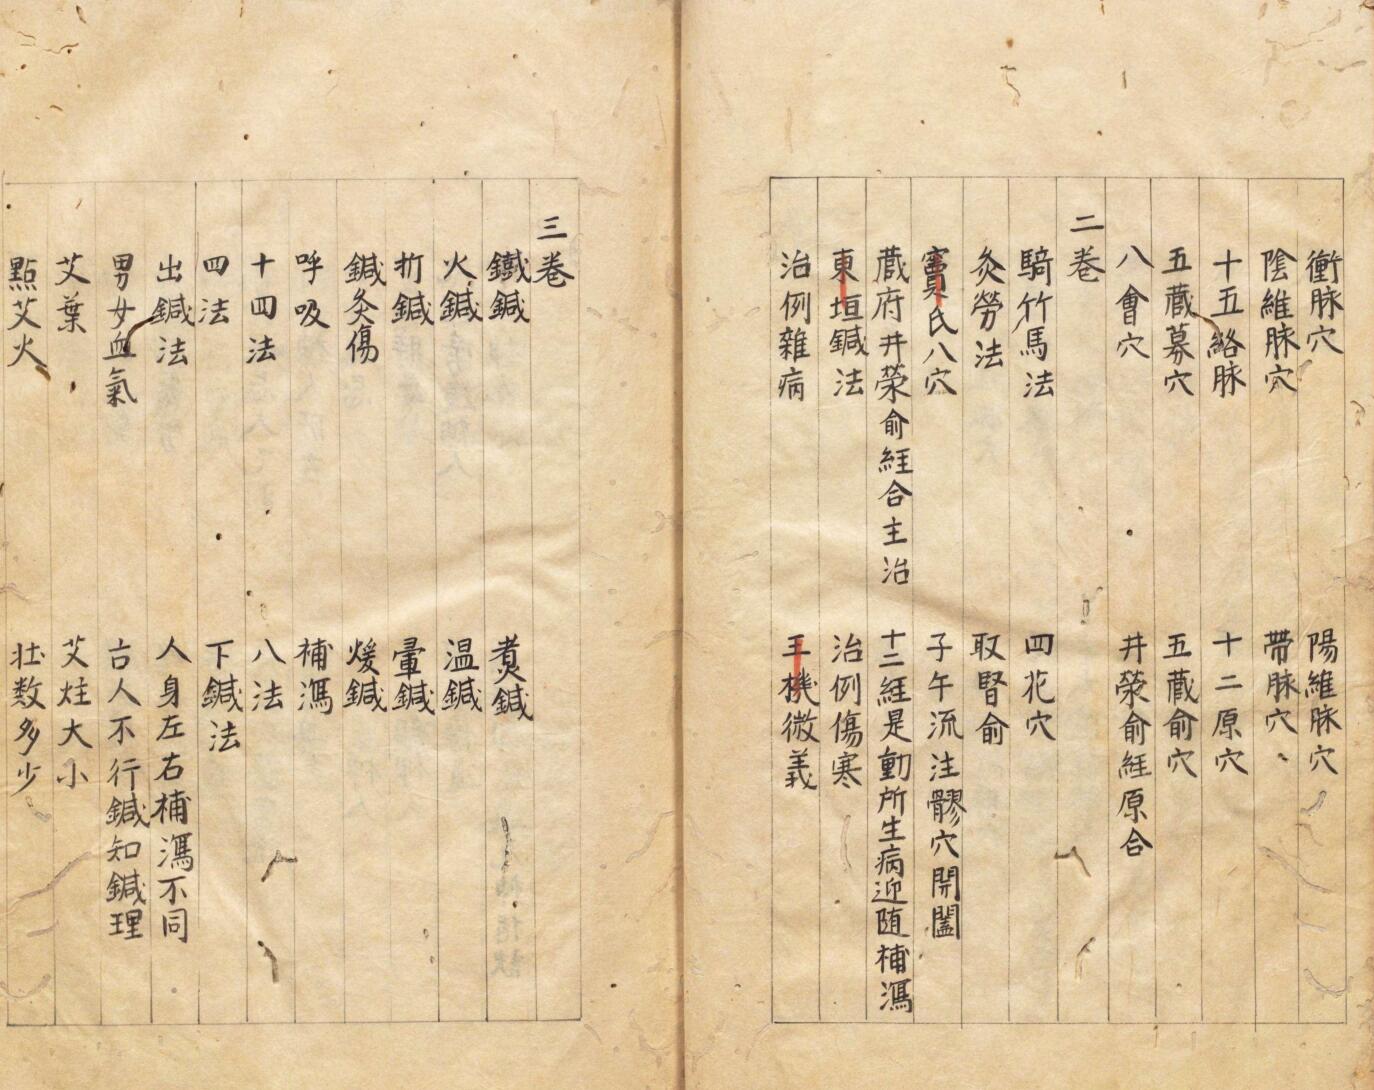 衝脉穴 陽維脉穴
陰維脉穴 帶脉穴
十五絡脉 十二原穴
五藏募穴 五藏俞穴
八會穴 井滎俞經原合
二卷
騎竹馬法 四花穴
灸勞法 取腎俞
竇氏八穴 子午流注髎穴開闔
藏府井滎俞經合主治 十二經是動所生病迎随補瀉
東垣鍼法 治例傷寒
治例雜病 玉機微義
三卷
鐵鍼 煮鍼
火鍼 温鍼
折鍼 暈鍼
鍼灸傷 煖鍼
呼吸 補瀉
十四法 八法
四法 下鍼法
出鍼法 人身左右補瀉不同
男女血氣 古人不行鍼知鍼理
艾葉 艾炷大小
點艾火 壯数多少